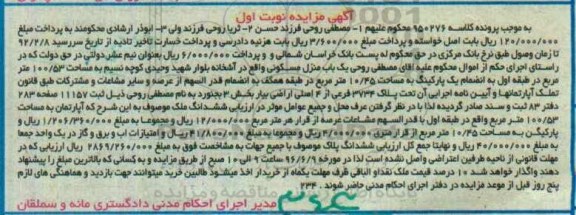 آگهی مزایده نوبت اول
به موجب پرونده کلاسه ۹۵۰۲۷۶ محکوم علیهم ۱- مصطفی روحی فرزند حسن ۲- ثریا روحی فرزند ولی ۳- ابوذر ارشادی محکومند به پرداخت مبلغ
۱۲۰/۰۰۰/۰۰۰ ریال بابت اصل خواسته و پرداخت مبلغ ۳/۲۶۰۰/۰۰۰ ریال بابت هزینه دادرسی و پرداخت خسارت تاخیر تادیه از تاریخ سررسید ۹۲/۲/۸
تا زمان وصول طبق نرخ بانک مرکزی در حق محکوم له پست بانک خراسان شمالی و پرداخت ۶/۰۰۰/۰۰۰ ریال بعنوان نیم عشر دولتی در حق دولت که در
راستای اجرای حکم از اموال محکوم علیه آقای مصطفی روحی یک باب منزل مسکونی واقع در آشخانه بلوار شهید وحیدی کوچه نسیم به مساحت ۱۰۰/۵۳
متر مربع در طبقه اول به انضمام یک پارکینگ به مساحت ۱۰/۴۵ متر مربع در طبقه همکف به انضمام قدر السهم از عرصه و سایر مشاعات و مشترکات طبق قانون
تملک آپارتمانها و آیین نامه اجرایی آن تحت پلاک ۳۷۳۴ فرعی از ۴ اصلی اراضی بیار بخش ۳ بجنورد به نام مصطفی روحی ذیل ثبت ۱۱۱۵۷ صفحه ۲۸۳
دفتر ۸۳ ثبت و سند صادر گردیده لذا با در نظر گرفتن عرف محل و جمیع عوامل موثر در ارزیابی ششدانگ ملک موصوف به این شرح که آپارتمان به مساحت
۱۰۰/۵۳ متر مربع واقع در طبقه اول با قدر السهم مشاعات عرصه از قرار هر متر مربع ۱۲/۰۰۰/۰۰۰ ریال و مجموعا به مبلغ ۱/۲۰۶/۳۶۰/۰۰۰ ریال و
پارکینگ به مساحت ۱۰/۴۵ متر مربع از قرار متری ریال و مجموعا به مبلغ ۴۱/۸۰۰/۰۰۰ ریال و امتیازات آب و برق و گاز در یک واحد جمعا
به مبلغ ۴۰/۰۰۰/۰۰۰ ریال و نهایتا جمع کل ارزیابی ششدانگ پلاک موصوف با جمیع جهات به مشاحصت فوق به مبلغ ۲۸۶۹/۲۶۰/۰۰۰ ریال ارزیابی که در
مهلت قانونی از ناحیه طرفین اعتراضی واصل نشده است لذا در مورخه ۹۶/۶/۹ ساعت ۹ الی ۱۰ صبح از طریق مزایده و به کسانی که بالاترین مبلغ را پیشنهاد
دهند واگذار خواهد شد ۱۰ درصد قیمت ملک نقدا و الباقی ظرف مهلت یکماه از خریدار اخذ میشود طالبین خرید میتوانند جهت بازدید و هماهنگی های لازم
پنج روز قبل از موعد مزایده در دفتر اجرای احکام مدنی حاضر شوند . ۲۳۴
مدیر اجرای احکام مدنی دادگستری مانه و سملقان